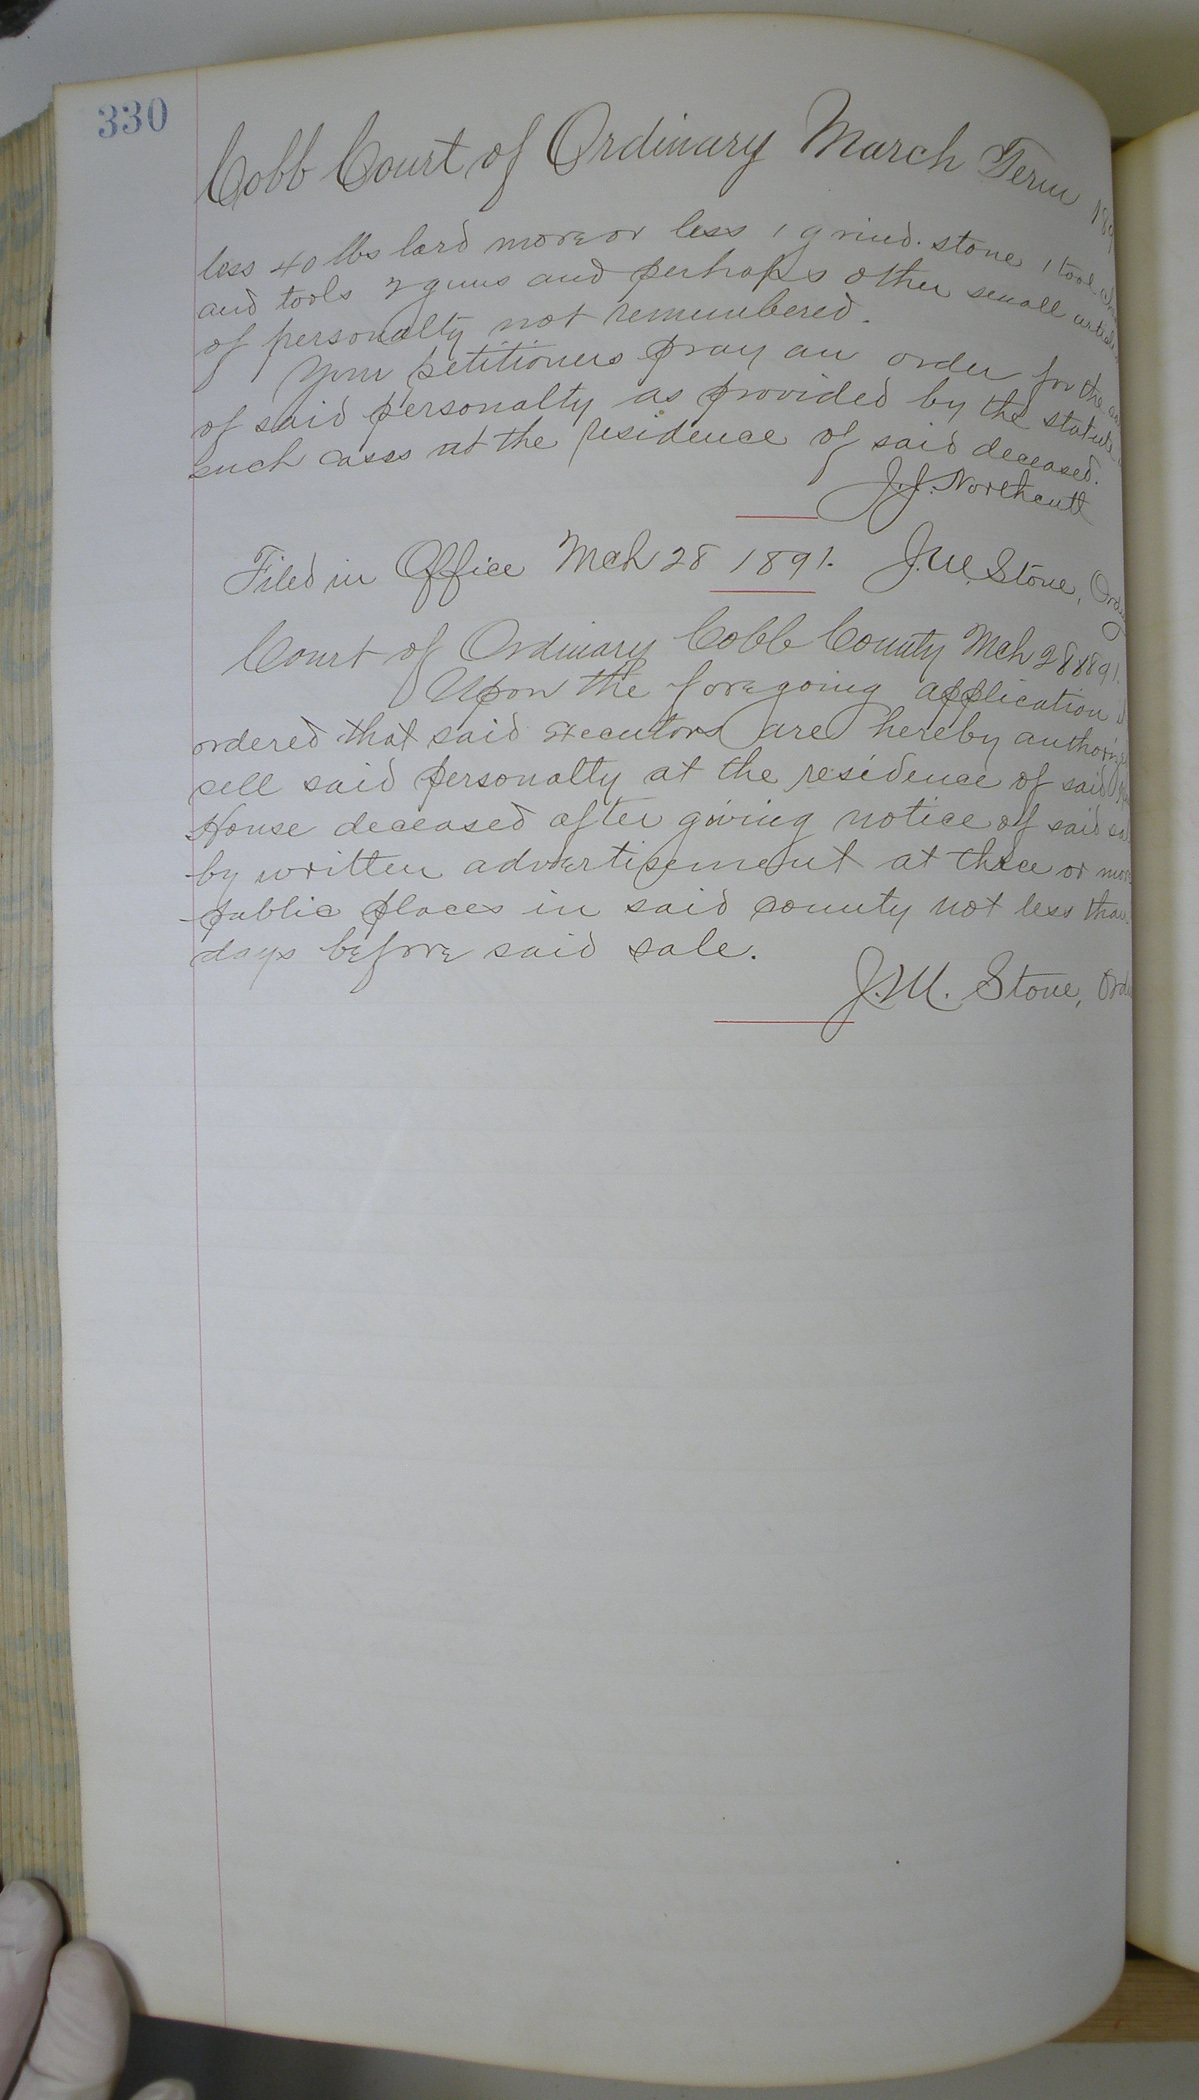 330
Cobb Court of Ordinary March Term 189
less 40 lbs lard more or less 1 grind. stone 1 tool
and tools 2 guns and perhaps other small
of personalty not remembered.
Your petitioners pray an order for the
of said personalty as provided by the statute
such cases at the residence of said deceased.
J.J. Northcutt
Filed in Office Mch 28 1891. J.M. Stone, Ord
Court of Ordinary Cobb County Mch 28 1891.
Upon the foregoing application
ordered that said executors are hereby
sell said personalty at the residence of said
House deceased after giving notice of said
by written advertisement at three or more
public places in said county not less than
days before said sale.
J.M. Stone, Ord